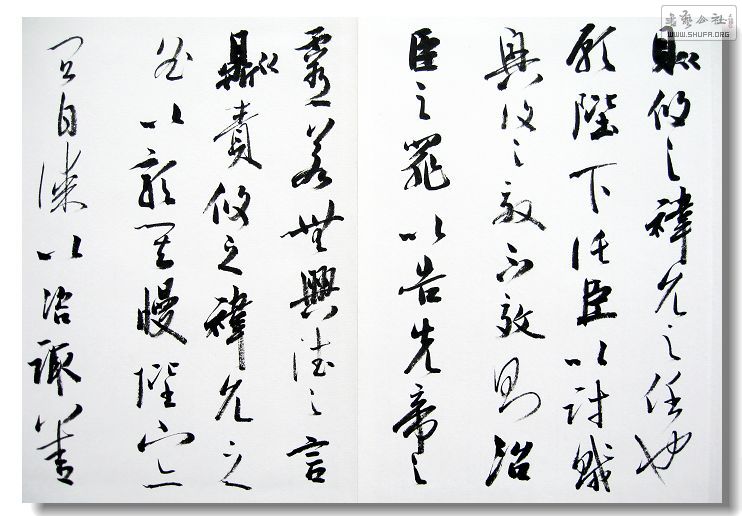 則攸之禕允之任也
願陛下託臣以討賊
興復之效不效則治
臣之罪以告先帝之
靈若無興德之言
則責攸之禕允之
咎以彰其慢陛下亦
宜自謀以咨諏善
书艺公社
WWW.SHUFA.ORG